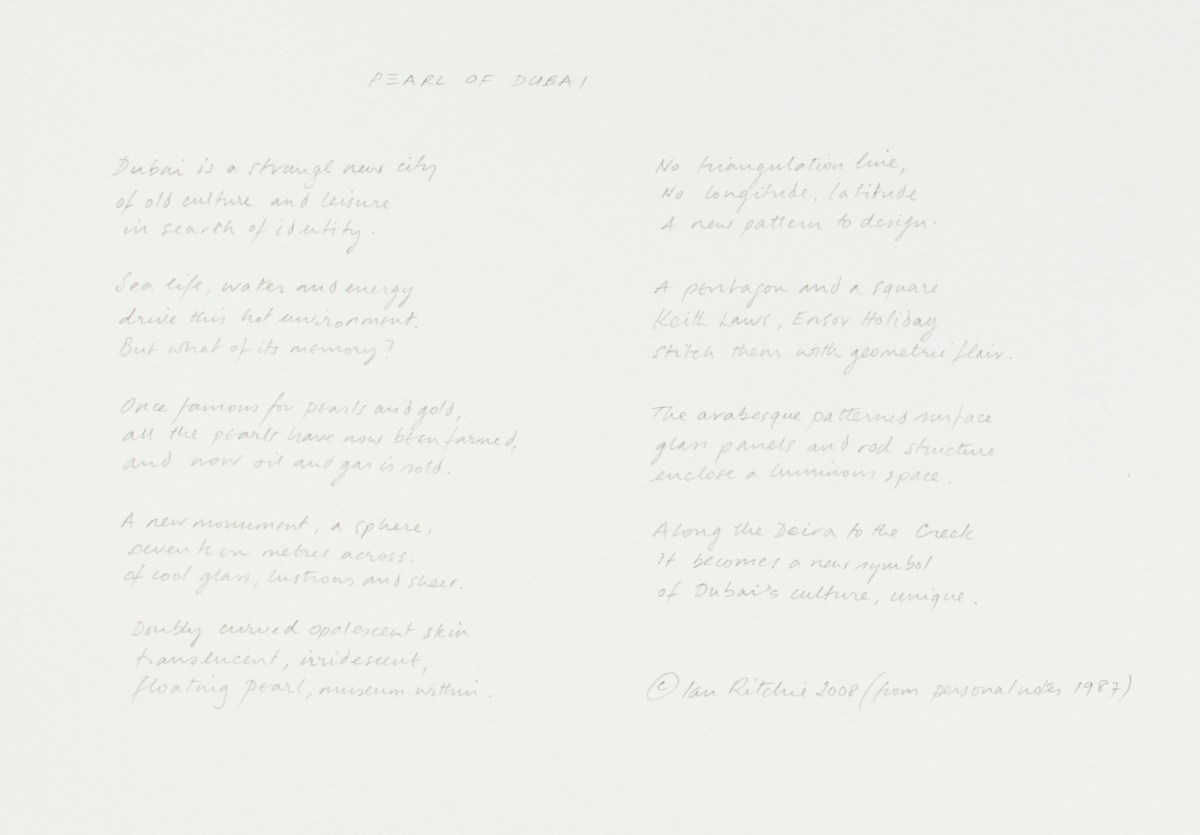 PEARL OF DUBAI
Dubai is a strange new city
of old culture and leisure
in search of identity.
Sea life, water and energy
drive this hot environment.
But what of its memory?
Once famous for pearls and gold,
all the pearls have now been farmed,
and now oil and gas is sold.
A new monument, a sphere,
seventeen metres across.
of cool glass, lustrous and sheer.
Doubly curved opalescent skin
translucent, irridescent,
floating pearl, museum within.
No triangulation line,
No longitude, latitude
A new pattern to design.
A pentagon and a square
Keith Laws, Ensor Holiday
stitch them with geometric flair.
The arabesque patterned surface
glass panels and rod structure
enclose a luminous space.
Along the Deira to the Creek
It becomes a new symbol
of Dubai's culture, unique.
© Ian Ritchie 2008 (from personal notes 1987)